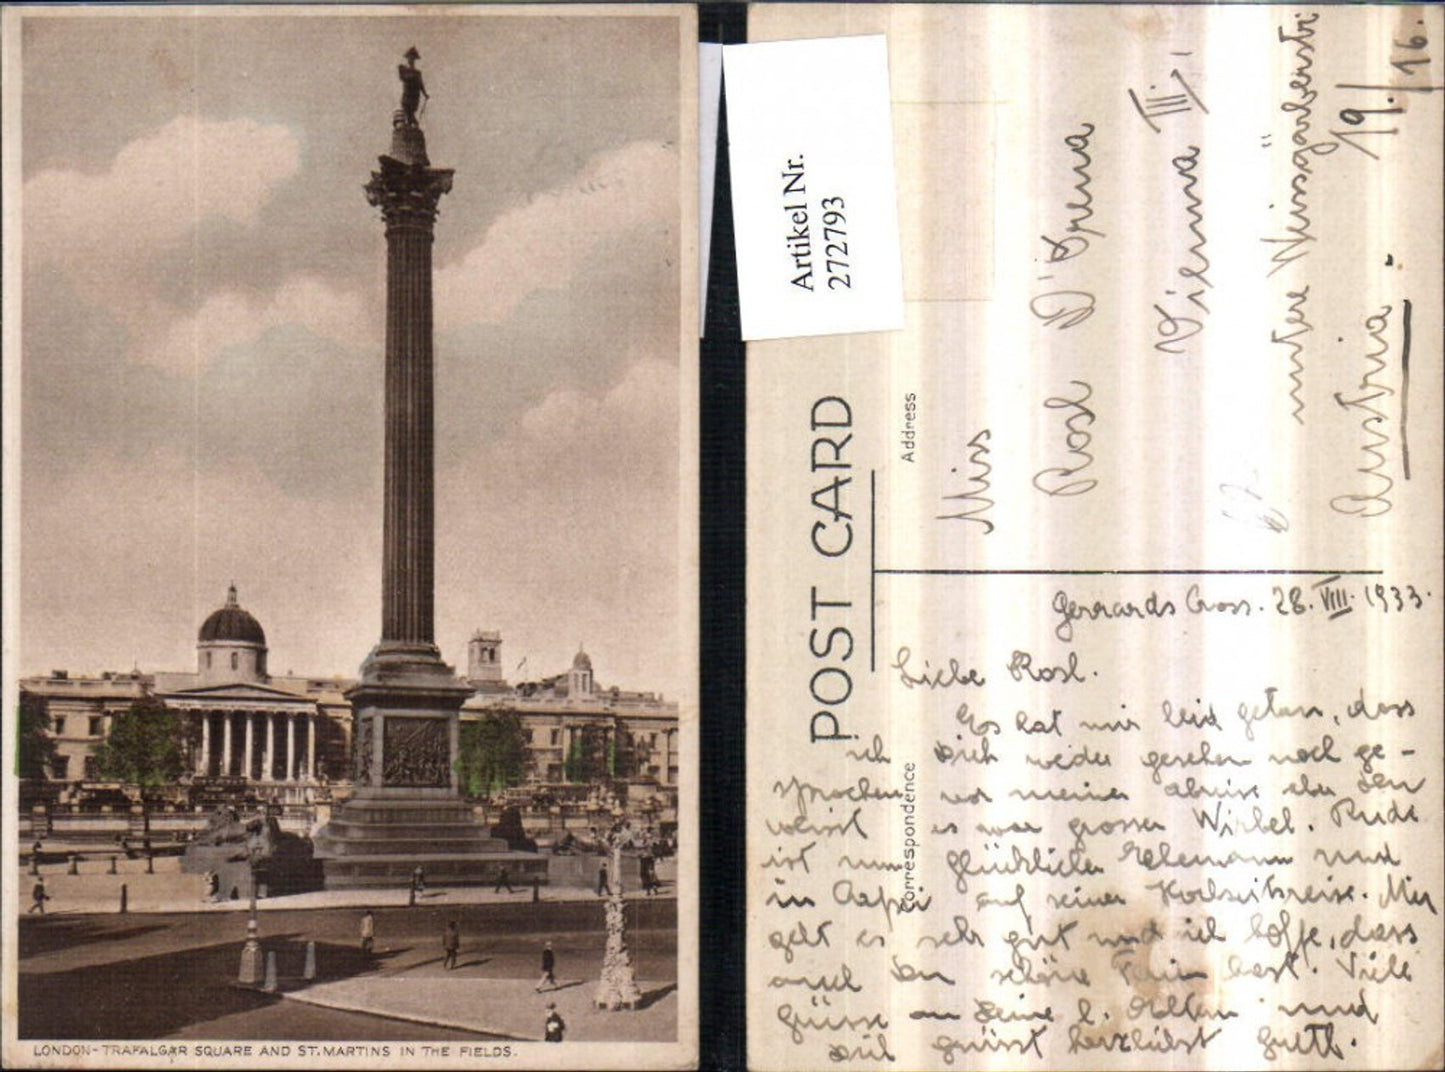 LONDON-TRAFALGAR SQUARE AND ST. MARTINS IN THE FIELDS.
Artikel Nr.
272793
POST CARD
Address
Correspondence
Miss
Rosl D'Orema
Vienna III.
untere Weissgärberstr
19./16.
Austria.
Gerrards Cross. 28. VIII. 1933.
Liebe Rosl.
Es hat mir leid getan, dass
ich Dich weder gesehen noch ge-
sprochen vor meiner Abreise aber Du
weisst es war grosser Wirbel. Rudi
ist nun glücklicher Ehemann und
in auf seiner Hochzeitsreise. Mir
geht es sehr gut und ich hoffe, dass
auch Du schöne hast. Viele
Grüsse an Deine l. Eltern und
Dich grüsst herzlichst